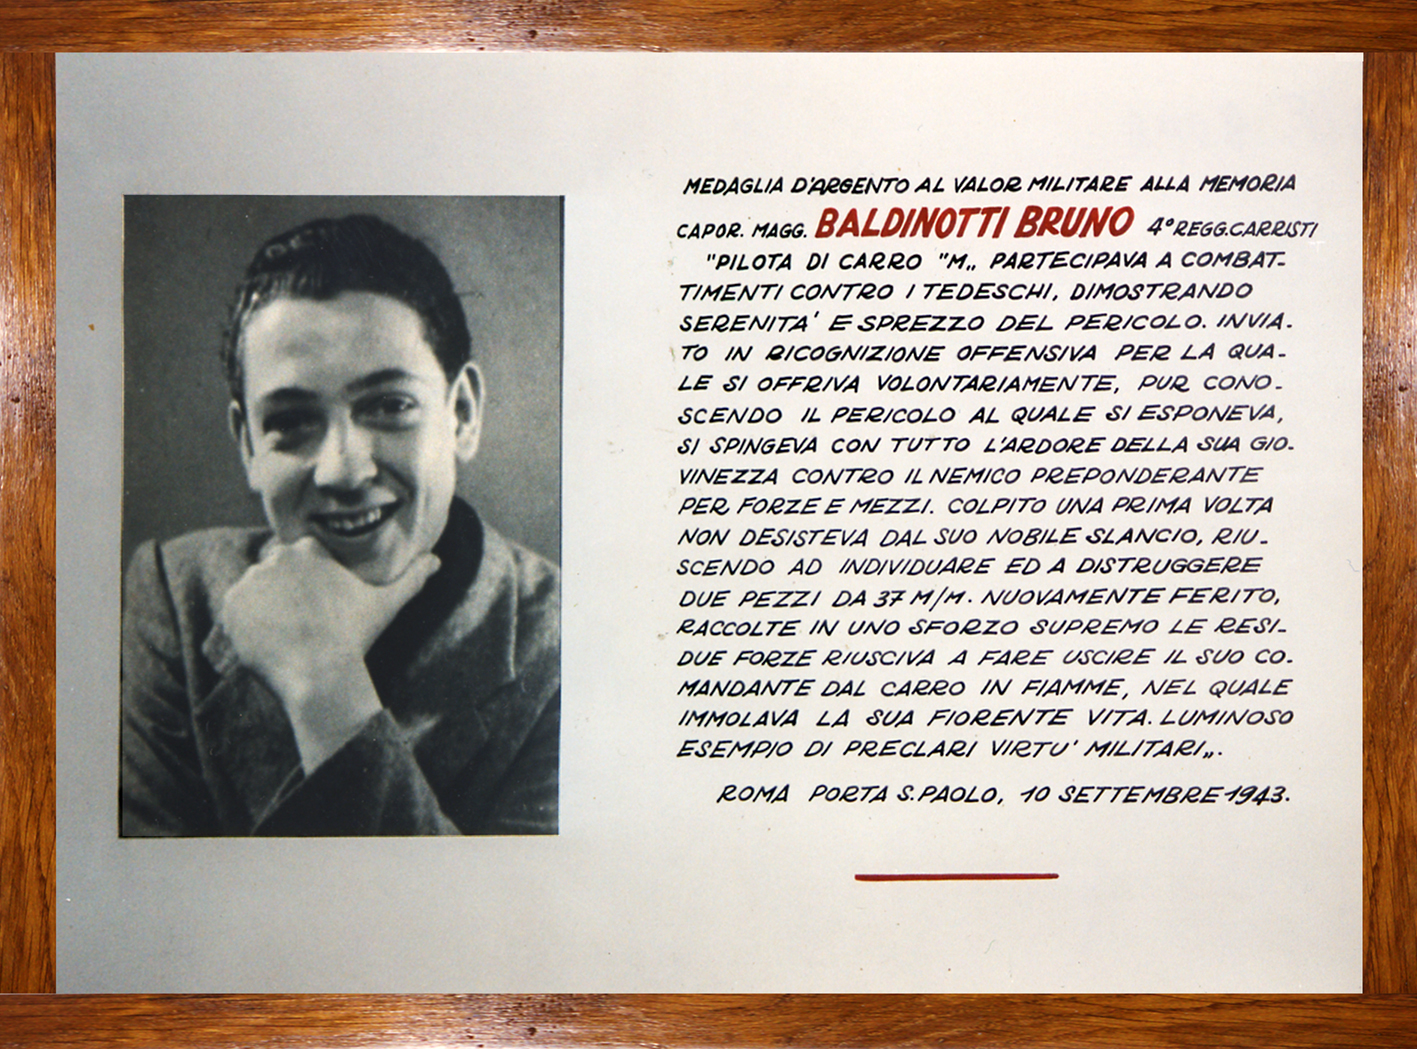 MEDAGLIA D'ARGENTO AL VALOR MILITARE ALLA MEMORIA
CAPOR. MAGG. BALDINOTTI BRUNO 4° REGG. CARRISTI
"PILOTA DI CARRO "M„ PARTECIPAVA A COMBAT-
TIMENTI CONTRO I TEDESCHI, DIMOSTRANDO
SERENITA' E SPREZZO DEL PERICOLO. INVIA-
TO IN RICOGNIZIONE OFFENSIVA PER LA QUA-
LE SI OFFRIVA VOLONTARIAMENTE, PUR CONO-
SCENDO IL PERICOLO AL QUALE SI ESPONEVA,
SI SPINGEVA CON TUTTO L'ARDORE DELLA SUA GIO-
VINEZZA CONTRO IL NEMICO PREPONDERANTE
PER FORZE E MEZZI. COLPITO UNA PRIMA VOLTA
NON DESISTEVA DAL SUO NOBILE SLANCIO, RIU-
SCENDO AD INDIVIDUARE ED A DISTRUGGERE
DUE PEZZI DA 37 M/M. NUOVAMENTE FERITO,
RACCOLTE IN UNO SFORZO SUPREMO LE RESI-
DUE FORZE RIUSCIVA A FARE USCIRE IL SUO CO-
MANDANTE DAL CARRO IN FIAMME, NEL QUALE
IMMOLAVA LA SUA FIORENTE VITA. LUMINOSO
ESEMPIO DI PRECLARI VIRTU' MILITARI„.
ROMA PORTA S. PAOLO, 10 SETTEMBRE 1943.